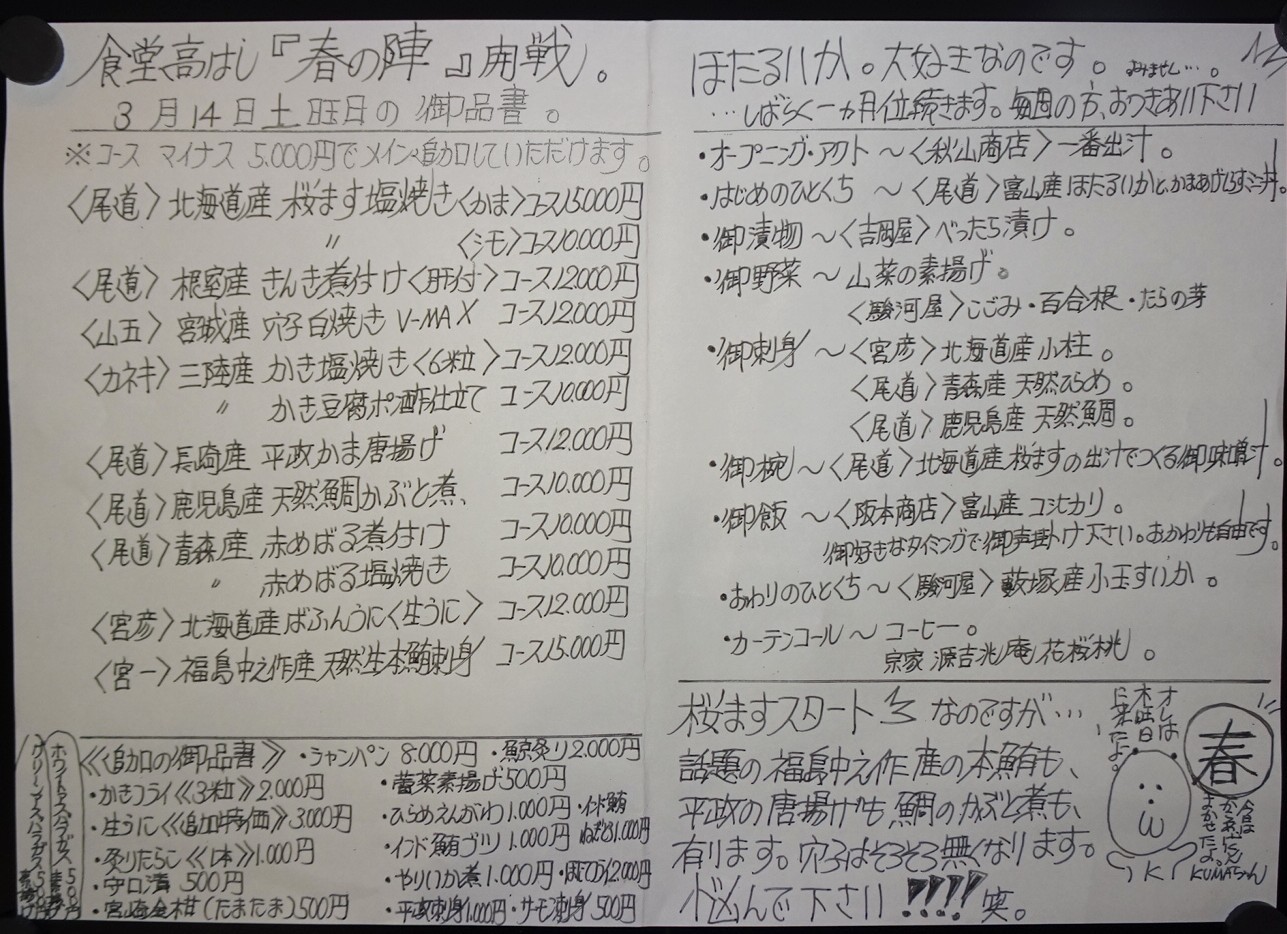 食堂高はし『春の陣』開戦。
3月14日土曜日の御品書。
※コース マイナス 5.000円でメイン追加していただけます。
〈尾道〉北海道産 桜ます塩焼き〈かま〉コース15.000円
〃 〈シモ〉コース10.000円
〈尾道〉根室産 きんき煮付け〈肝付〉コース12.000円
〈山五〉宮城産 穴子白焼き V-MAX コース12.000円
〈カネキ〉三陸産 かき塩焼き〈6粒〉コース12.000円
〃 かき豆腐ポン酢仕立て コース10.000円
〈尾道〉長崎産 平政かま唐揚げ コース12.000円
〈尾道〉鹿児島産 天然鯛かぶと煮、 コース10.000円
〈尾道〉青森産 赤めばる煮付け コース10.000円
〃 赤めばる塩焼き コース10.000円
〈宮彦〉北海道産ばふんうに〈生うに〉 コース12.000円
〈宮一〉福島中之作産 天然生本鮪刺身 コース15.000円
《追加の御品書》
・シャンパン 8.000円 ・鯨炙り2.000円
・かきフライ《3粒》2.000円
・蕾菜素揚げ500円
・生うに《追加特価》3.000円
・ひらめえんがわ1.000円
・インド鮪
ねぎとろ1.000円
・炙りたらこ《1本》1.000円
・インド鮪ブツ 1.000円
・守口漬 500円
・やりいか煮1.000円
・宮崎金柑(たまたま)500円
・平政刺身1.000円・サーモン刺身500円
ホワイトアスパラガス
グリーンアスパラガス
ほたるいか。大好きなのです。
…しばらく一ヵ月位続きます。毎週の方、おつきあい下さい
・オープニング・アクト ～〈秋山商店〉一番出汁。
・はじめのひとくち ～〈尾道〉富山産 ほたるいかと、かまあげしらすミニ丼。
・御漬物～〈吉岡屋〉べったら漬け。
・御野菜～山菜の素揚げ。
〈駿河屋〉こごみ・百合根・たらの芽
・御刺身～〈宮彦〉北海道産小柱。
〈尾道〉青森産 天然ひらめ。
〈尾道〉鹿児島産 天然鯛。
・御椀～〈尾道〉北海道産桜ますの出汁でつくる御味噌汁。
・御飯 ～〈阪本商店〉富山産 コシヒカリ。
御好きなタイミングで御声掛け下さい。おかわりも自由です。
・おわりのひとくち～〈駿河屋〉藪塚産小玉すいか。
・カーテンコール～コーヒー。
宗家 源吉兆庵 花桜桃。
桜ますスタート なのですが…
話題の福島中之作産の本鮪も、
平政の唐揚げも鯛のかぶと煮も、
有ります。穴子はそろそろ無くなります。
小凶んで下さい!!!! 実。
オレは
木曜日
に来たよ。
春
まかせたよ。
K
KUMAちゃん